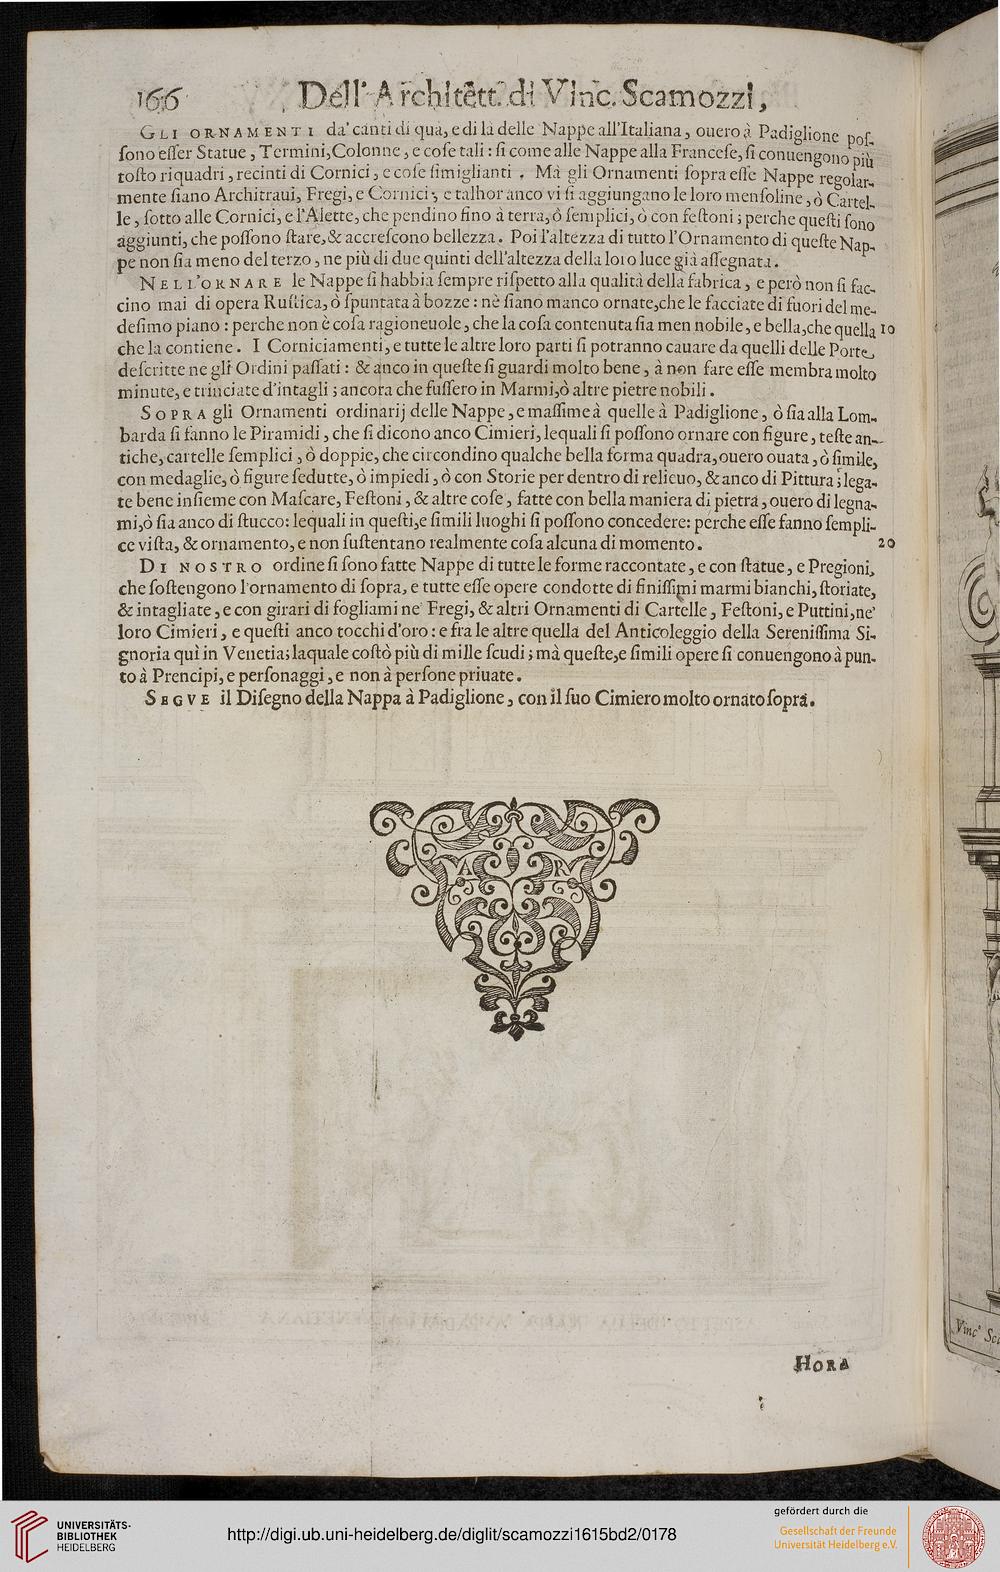 166 Dell'Architett. di Vinc. Scamozzi,
GLI ORNAMENTI da' canti di quà, e di là delle Nappe all'Italiana, ouero à Padiglione pos-
sono esser Statue, Termini, Colonne, e cose tali: si come alle Nappe alla Francese, si conuengono più
tosto riquadri, recinti di Cornici, e cose simiglianti. Mà gli Ornamenti sopra esse Nappe regolar-
mente siano Architraui, Fregi, e Cornici; e talhor anco vi si aggiungano le loro mensoline, ò Cartel-
le, sotto alle Cornici, e l'Alette, che pendino fino à terra, ò semplici, ò con festoni; perche questi sono
aggiunti, che possono stare, & accrescono bellezza. Poi l'altezza di tutto l'Ornamento di queste Nap-
pe non sia meno del terzo, ne più di due quinti dell'altezza della loro luce già assegnata.
NELL'ORNARE le Nappe si habbia sempre rispetto alla qualità della fabrica, e però non si fac-
cino mai di opera Rustica, ò spuntata à bozze: nè siano manco ornate, che le facciate di fuori del me-
desimo piano: perche non è cosa ragioneuole, che la cosa contenuta sia men nobile, e bella, che quella 10
che la contiene. I Corniciamenti, e tutte le altre loro parti si potranno cauare da quelli delle Porte
descritte ne gli Ordini passati: & anco in queste si guardi molto bene, à non fare esse membra molto
minute, e trinciate d'intagli; ancora che fussero in Marmi, ò altre pietre nobili.
SOPRA gli Ornamenti ordinarij delle Nappe, e massime à quelle à Padiglione, ò sia alla Lom-
barda si fanno le Piramidi, che si dicono anco Cimieri, lequali si possono ornare con figure, teste an-
tiche, cartelle semplici, ò doppie, che circondino qualche bella forma quadra, ouero ouata, ò simile,
con medaglie, ò figure sedutte, ò impiedi, ò con Storie per dentro di relieuo, & anco di Pittura; lega-
te bene insieme con Mascare, Festoni, & altre cose, fatte con bella maniera di pietra, ouero di legna-
mi, ò sia anco di stucco: lequali in questi, e simili luoghi si possono concedere: perche esse fanno sempli-
ce vista, & ornamento, e non sustentano realmente cosa alcuna di momento. 20
DI NOSTRO ordine si sono fatte Nappe di tutte le forme raccontate, e con statue, e Pregioni,
che sostengono l'ornamento di sopra, e tutte esse opere condotte di finissimi marmi bianchi, storiate,
& intagliate, e con girari di fogliami ne' Fregi, & altri Ornamenti di Cartelle, Festoni, e Puttini, ne'
loro Cimieri, e questi anco tocchi d'oro: e fra le altre quella del Anticoleggio della Serenissima Si-
gnoria quì in Venetia; laquale costò più di mille scudi; mà queste, e simili opere si conuengono à pun-
to à Prencipi, e personaggi, e non à persone priuate.
SEGVE il Disegno della Nappa à Padiglione, con il suo Cimiero molto ornato sopra.
A R
HORA
Vinc°
UNIVERSITÄTS-
BIBLIOTHEK
HEIDELBERG
http://digi.ub.uni-heidelberg.de/diglit/scamozzi1615bd2/0178
gefördert durch die
Gesellschaft der Freunde
Universität Heidelberg e.V.